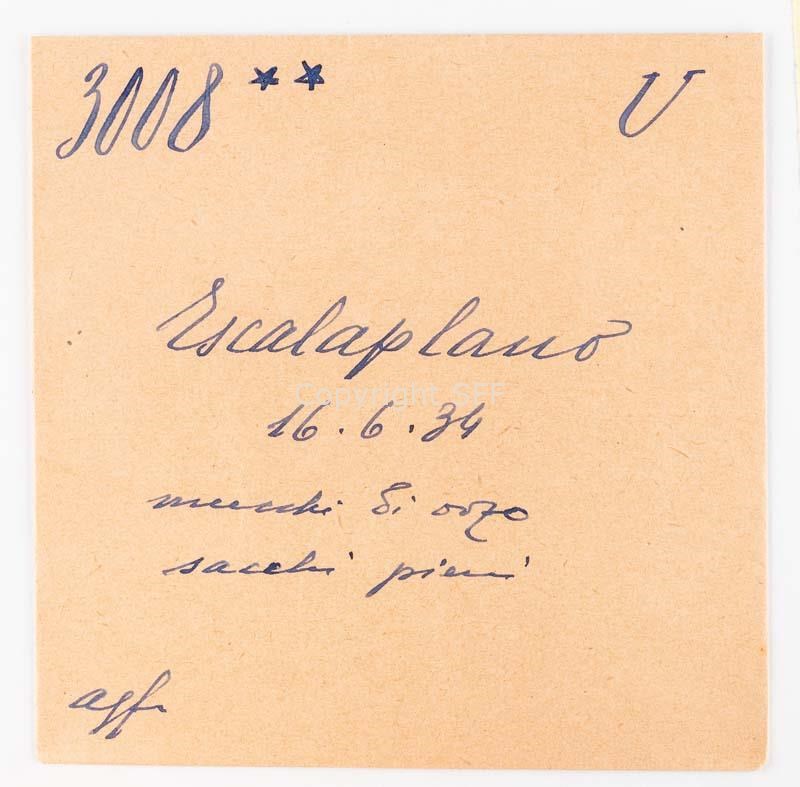 3008 ** U
Escalaplano
Copyright SFF
16.6.34
mucchi di orzo
sacchi pieni
agfa